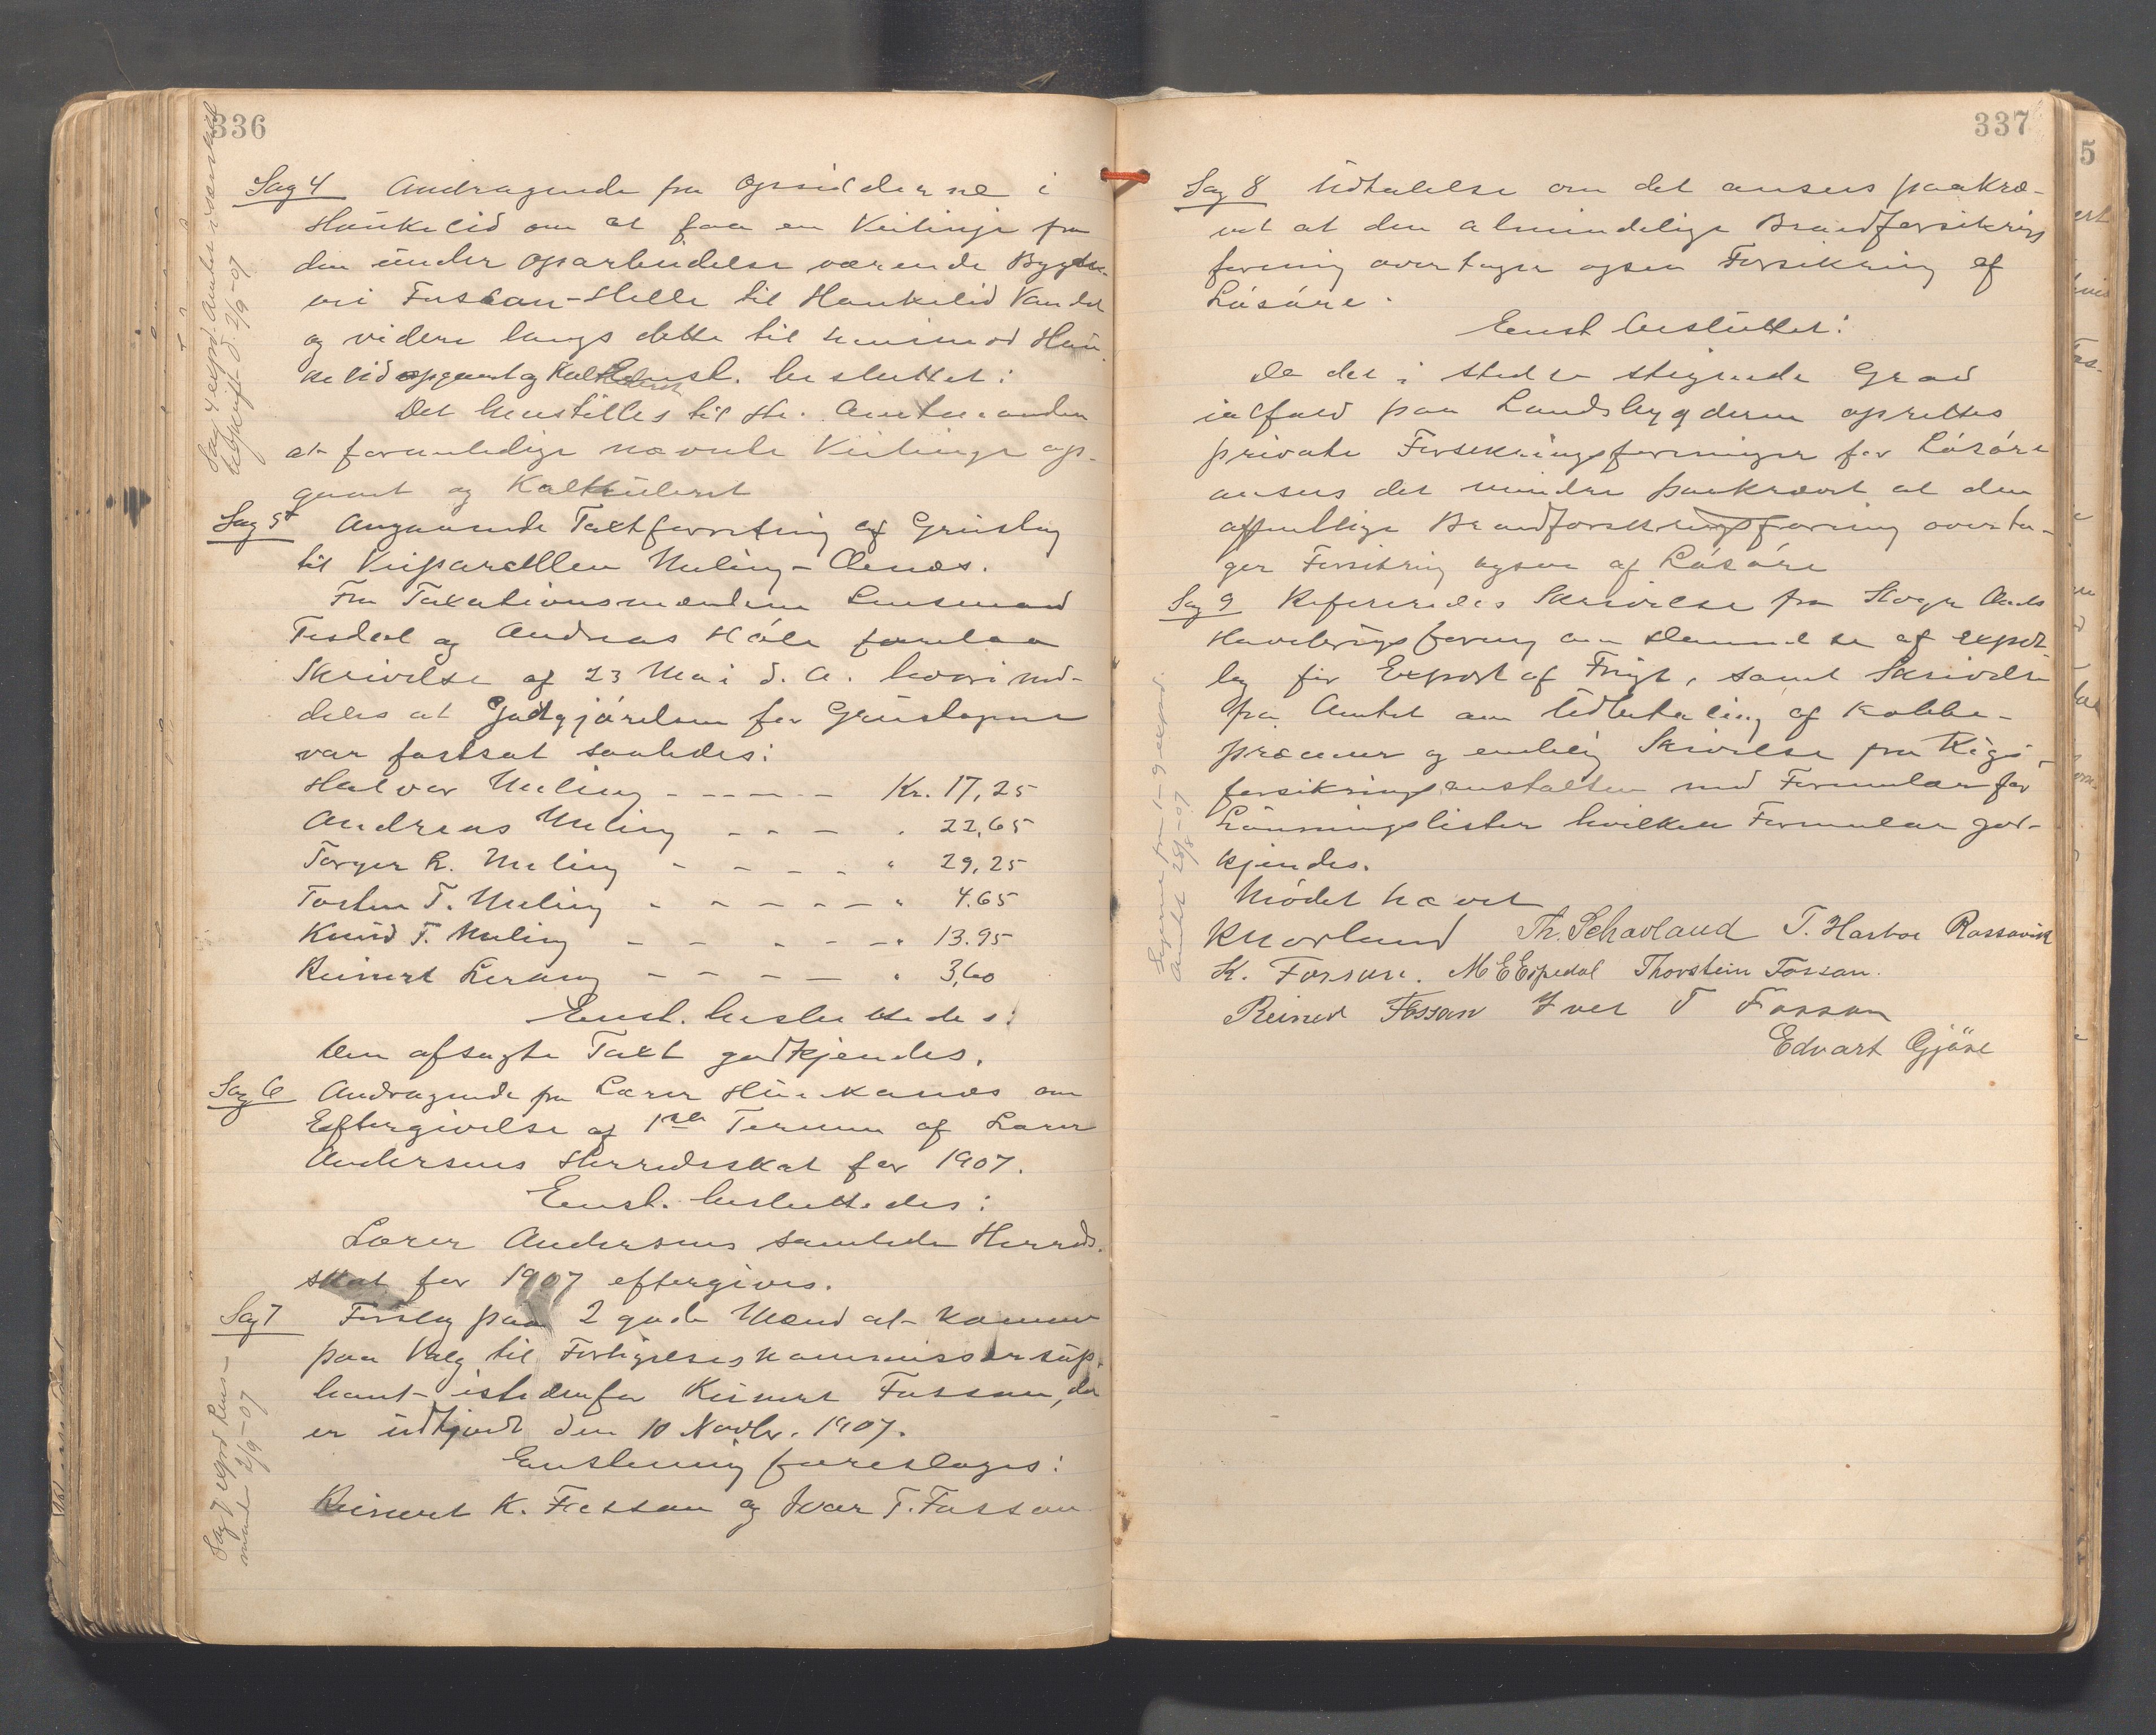 336
Sag 4 Andragende fra Opsidderne i
Haukelid om at faa en Veilinje fra
den under Oparbeidelse værende Bygde-
vei Fossan-Helle til Haukelid Vandet
og videre langs dette til henimod Hau-
kelid opgaaet og Kalkuleret Enst. besluttet:
Det henstilles til Hr. Amtmanden
at foranledige nævnte Veilinje op-
gaaet og Kalkuleret
Sag 5 Angaaende Taxtforretning af Grustag
til Veiparcellen Meling-Aenæs.
Fra Taxationsmændene Lensmand
Tesdal og Andreas Håle forelaa
Skrivelse af 23 Mai d. A. hvori med-
deles at Godtgjörelsen for Grustagene
var fastsat saaledes:
Halvor Meling - - - - - Kr. 17,25
Andreas Meling - - - " 22,65
Torger R. Meling - - - - " 29,25
Tosten T. Meling - - - - - " 4.65
Knud T. Meling - - - - - " 13.95
Reinert Lerang - - - - " 3,60
Enst. besluttedes:
Den afsagte Taxt godkjendes.
Sag 6 Andragende fra Lærer om
Eftergivelse af 1ste Termin af Lærer
Andersens Herredsskat for 1907.
Enst. besluttedes:
Lærer Andersens samlede Herreds-
skat for 1907 eftergives.
Sag 7 Forslag paa 2 gode Mænd at komme
paa Valg til Forligelseskommissærsup-
leant istedenfor Reinert Fossan, der
er udtjent den 10 Novbr. 1907.
Enstemmig foreslages:
Reinert K. Fossan og Ivar T. Fossan
Sag 4 expd. Amtet
2/9-07
Sag 7 expd
2/9-07
337
Sag 8 Udtalelse om det ansees paakræ-
vet at den almindelige Brandforsikrings
forening overtager ogsaa Forsikring af
Lösöre.
Enst besluttet:
Da det i stedse stigende Grad
ialfald paa Landsbygderne oprettes
private Forsikringsforeninger for Lösöre
ansees det mindre paakrævet at den
offentlige Brandforsikringsforening overta-
ger Forsikring ogsaa af Lösöre
Sag 9 Refereredes Skrivelse fra Stav. Amts
Havebrugsforening om Dannelse af
lag for Export af Frugt, samt Skrivelse
fra Amtet om Udbetaling af Kobbe-
præmier og endelig Skrivelse fra Rigs-
forsikringsanstalten med Formular for
Lönningslister hvilken Formular god-
kjendes.
Mödet hævet
K Norland Th. Schavland T. Harboe Rossavik
K. Fossan. M E Espedal Thorstein Fossan.
Reinert Fossan Iver T Fossan
Edvart Gjöse
Sagerne fra 1-9 expd.
Amtet 28/8-07
5